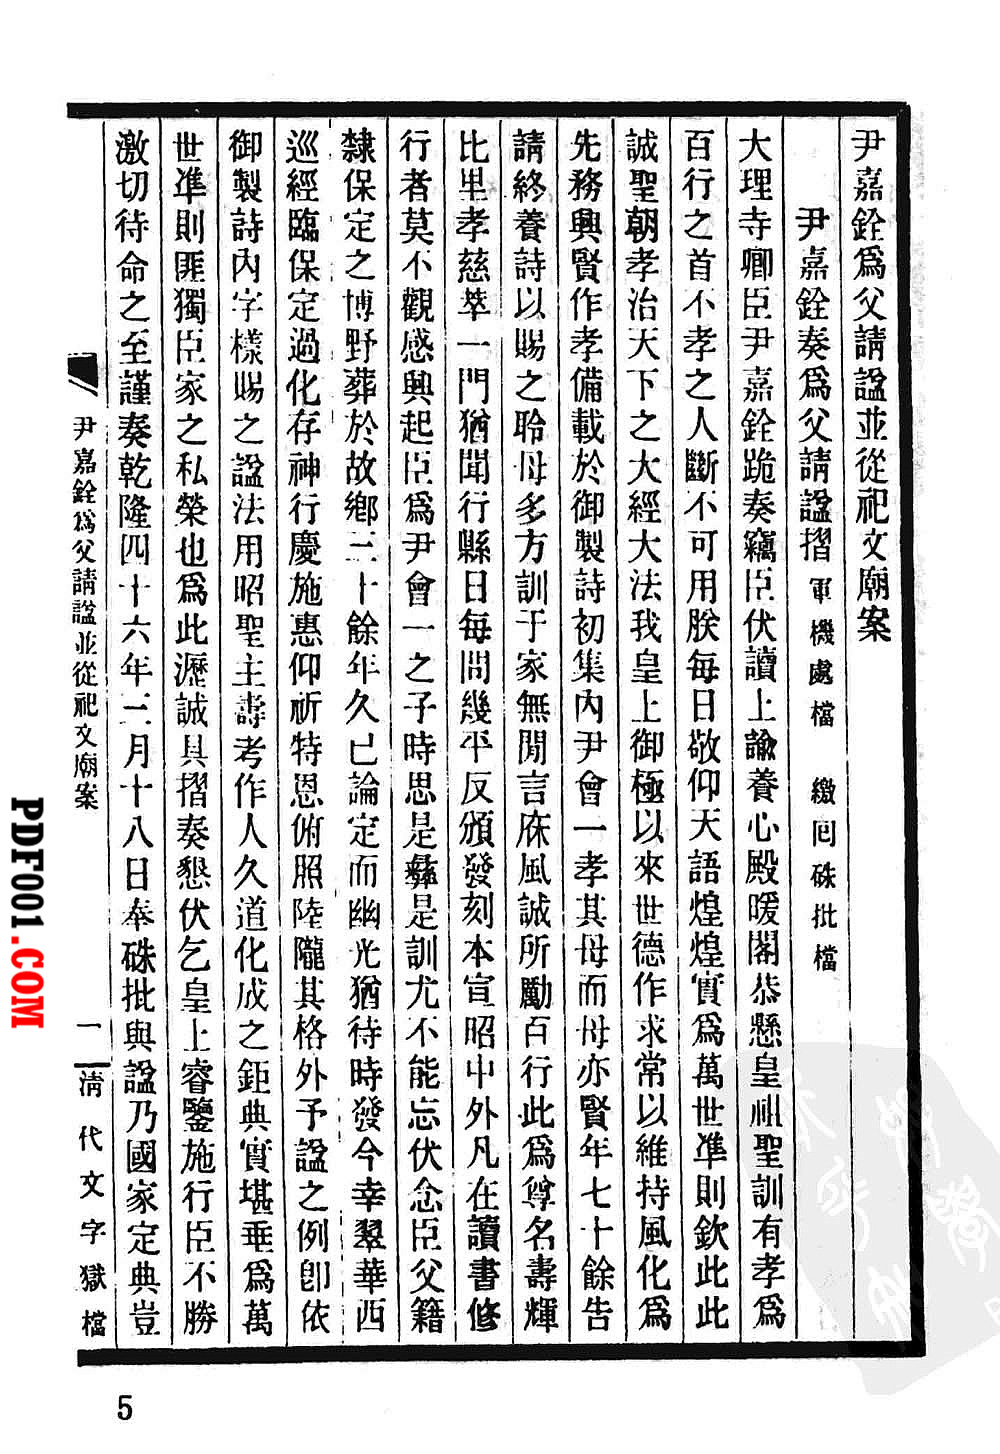 尹嘉銓為父請諡並從祀文廟案
尹嘉銓奏為父請諡摺 軍機處檔 繳回硃批檔
大理寺卿臣尹嘉銓跪奏竊臣伏讀上諭養心殿暖閣恭懸皇祖聖訓有孝為
百行之首不孝之人斷不可用朕每日敬仰天語煌煌實為萬世準則欽此此
誠聖朝孝治天下之大經大法我皇上御極以來世德作求常以維持風化為
先務興賢作孝備載於御製詩初集內尹會一孝其母而母亦賢年七十餘告
請終養詩以賜之聆母多方訓于家無閒言庥風誠所勵百行此為尊名壽輝
比里孝慈萃一門猶聞行縣日每問幾平反頒發刻本宣昭中外凡在讀書修
行者莫不觀感興起臣為尹會一之子時思是彝是訓尤不能忘伏念臣父籍
隸保定之博野葬於故鄉三十餘年久已論定而幽光猶待時發今幸翠華西
巡經臨保定過化存神行慶施惠仰祈特恩俯照陸隴其格外予諡之例卽依
御製詩內字樣賜之諡法用昭聖主壽考作人久道化成之鉅典實堪垂為萬
世準則匪獨臣家之私榮也為此瀝誠具摺奏懇伏乞皇上睿鑒施行臣不勝
激切待命之至謹奏乾隆四十六年三月十八日奉硃批與諡乃國家定典豈
尹嘉銓為父請諡並從祀文廟案
一
清代文字獄檔
5
PDF001.COM